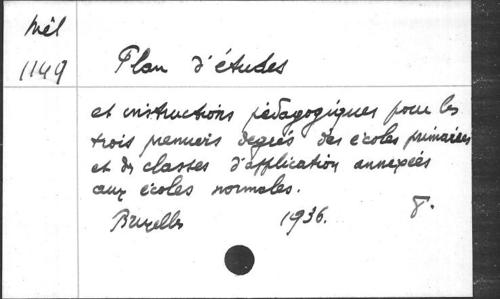 Mél
1149
Plan d'études
et instructions pédagogiques pour les
trois premiers degrés des écoles primaires
et des classes d'application annexées
aux écoles normales.
Bruxelles 1936. 8.